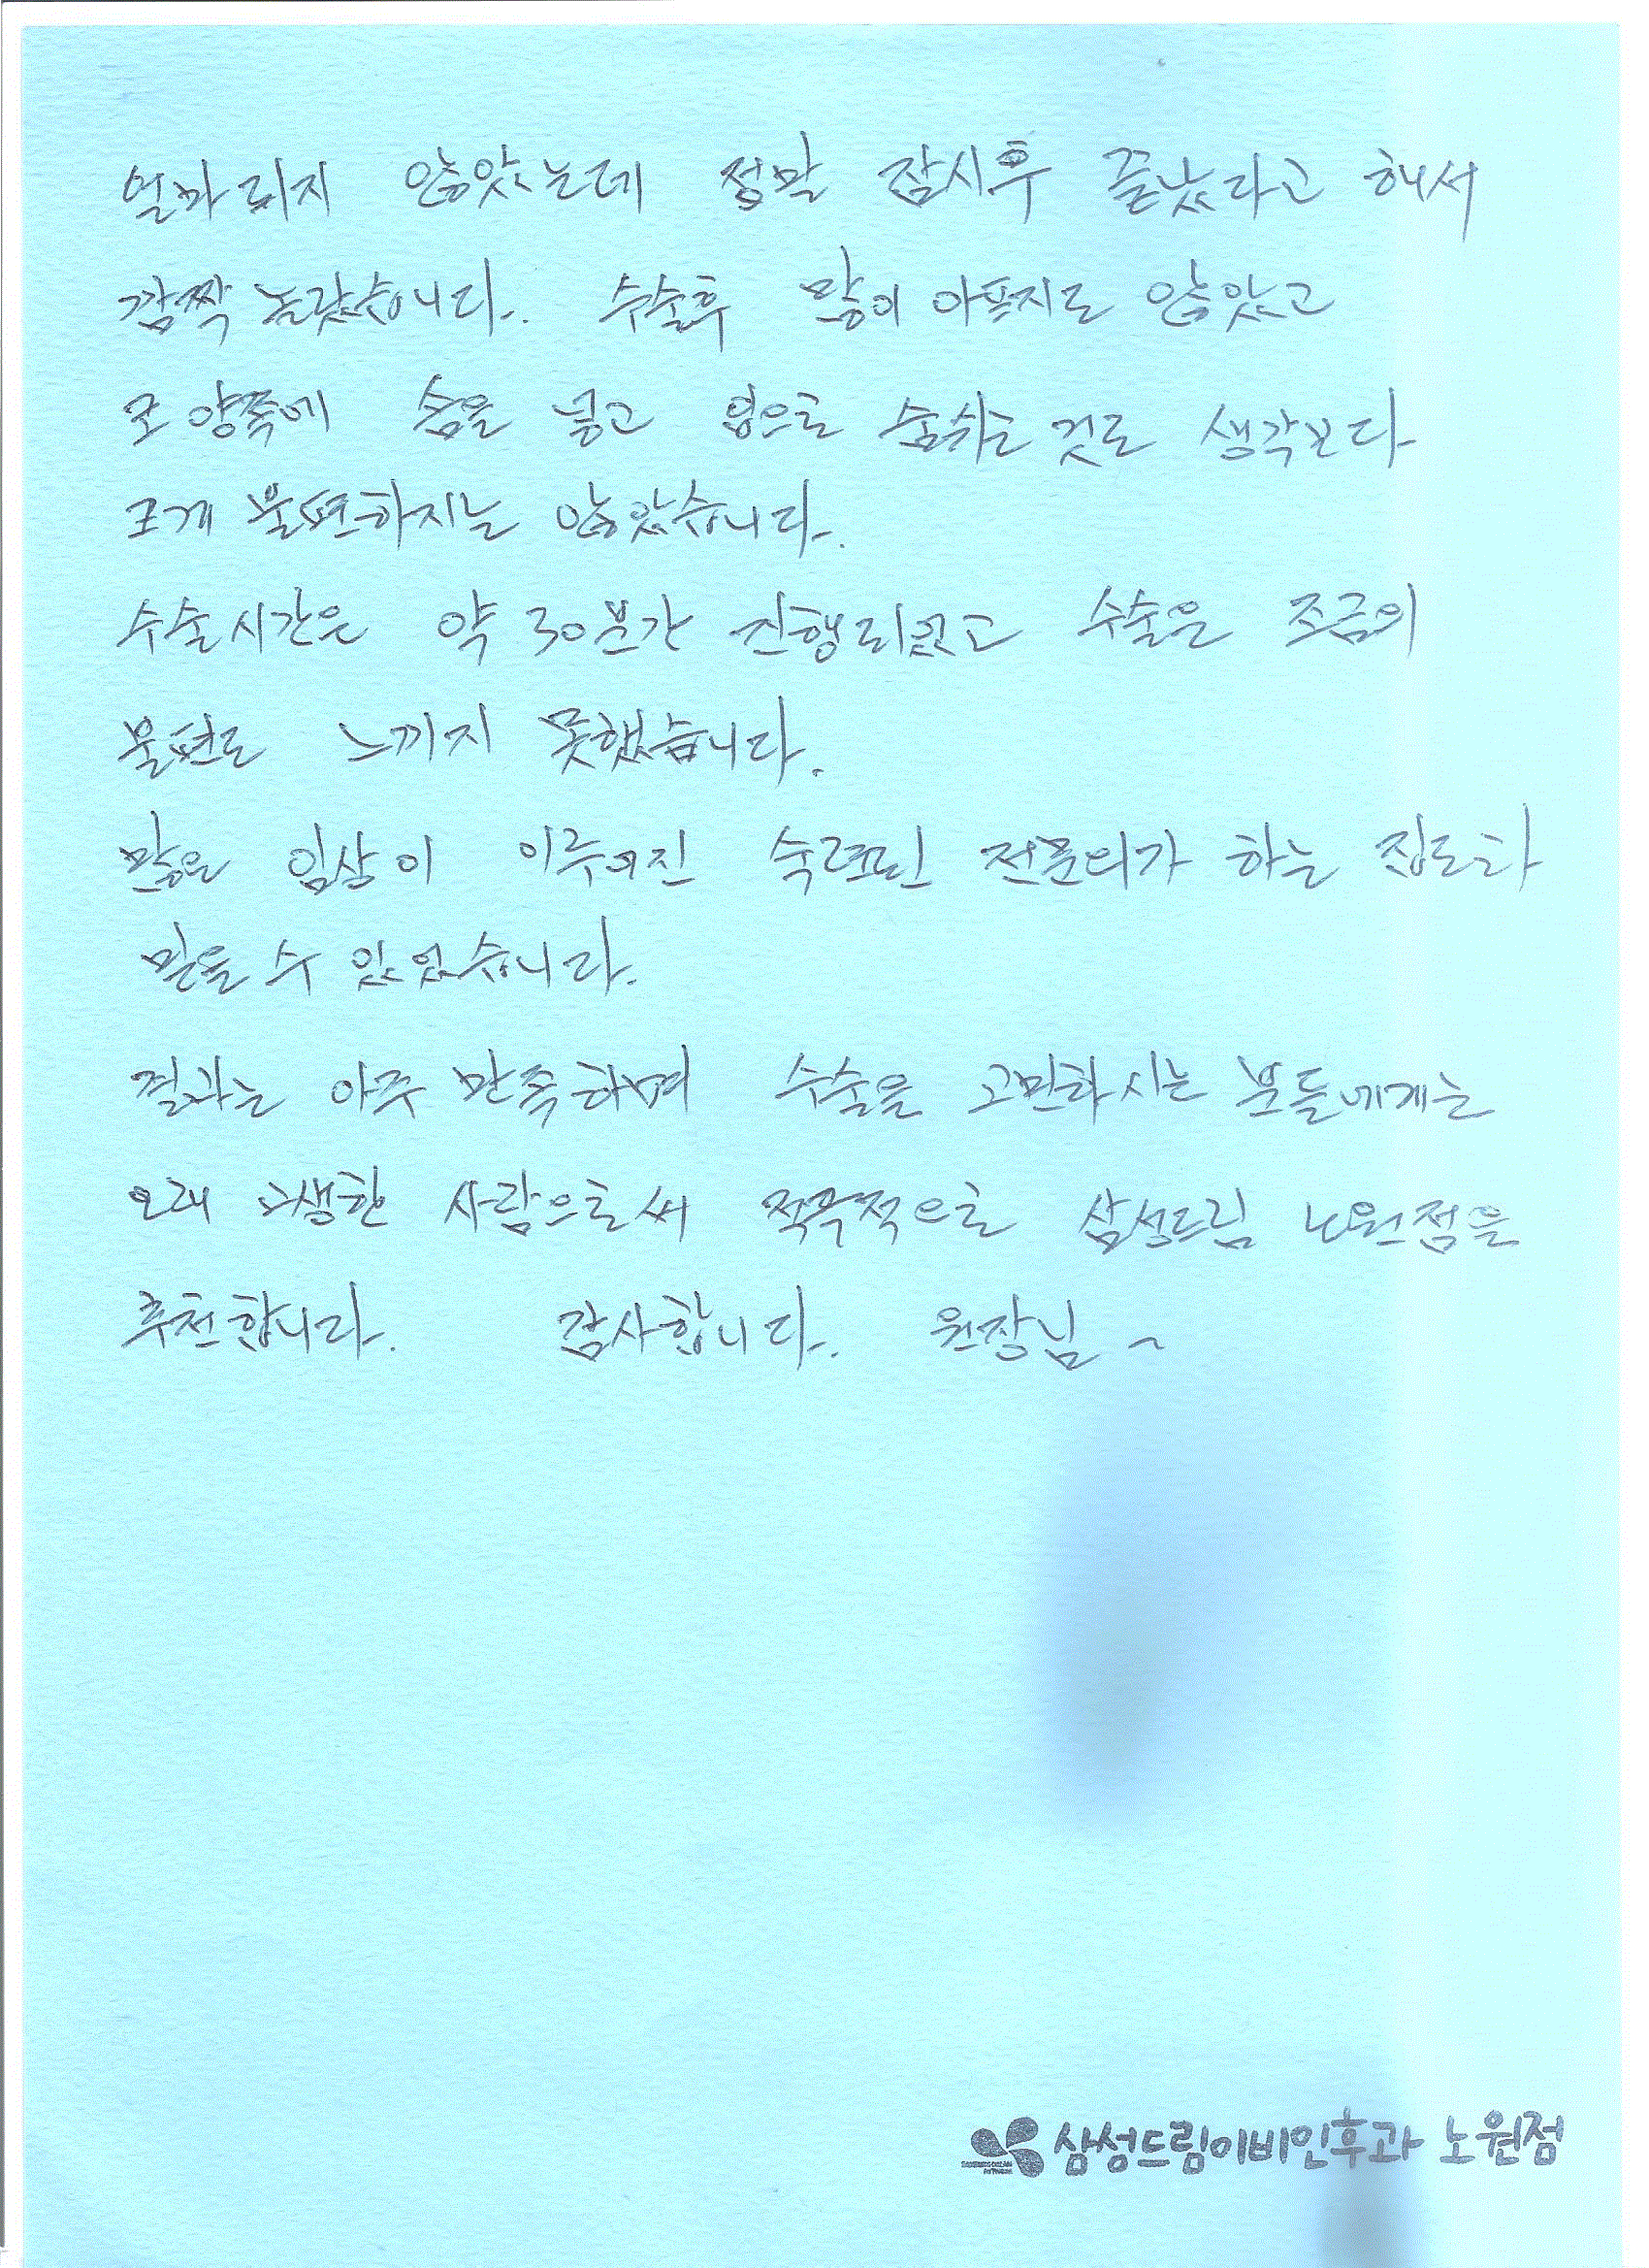 얼마 되지 않았는데 정말 잠시후 끝났다고 해서
깜짝 놀랐습니다. 수술후 많이 아프지도 않았고
코 양쪽에 솜을 넣고 입으로 숨쉬는 것도 생각보다
크게 불편하지는 않았습니다.
수술시간은 약 30분간 진행되었고 수술은 조금의
불편도 느끼지 못했습니다.
많은 임상이 이루어진 숙련된 전문의가 하는 집도라
믿을 수 있었습니다.
결과는 아주 만족하며 수술을 고민하시는 분들에게는
오래 고생한 사람으로써 적극적으로 삼성드림 노원점을
추천합니다. 감사합니다. 원장님~
삼성드림이비인후과 노원점